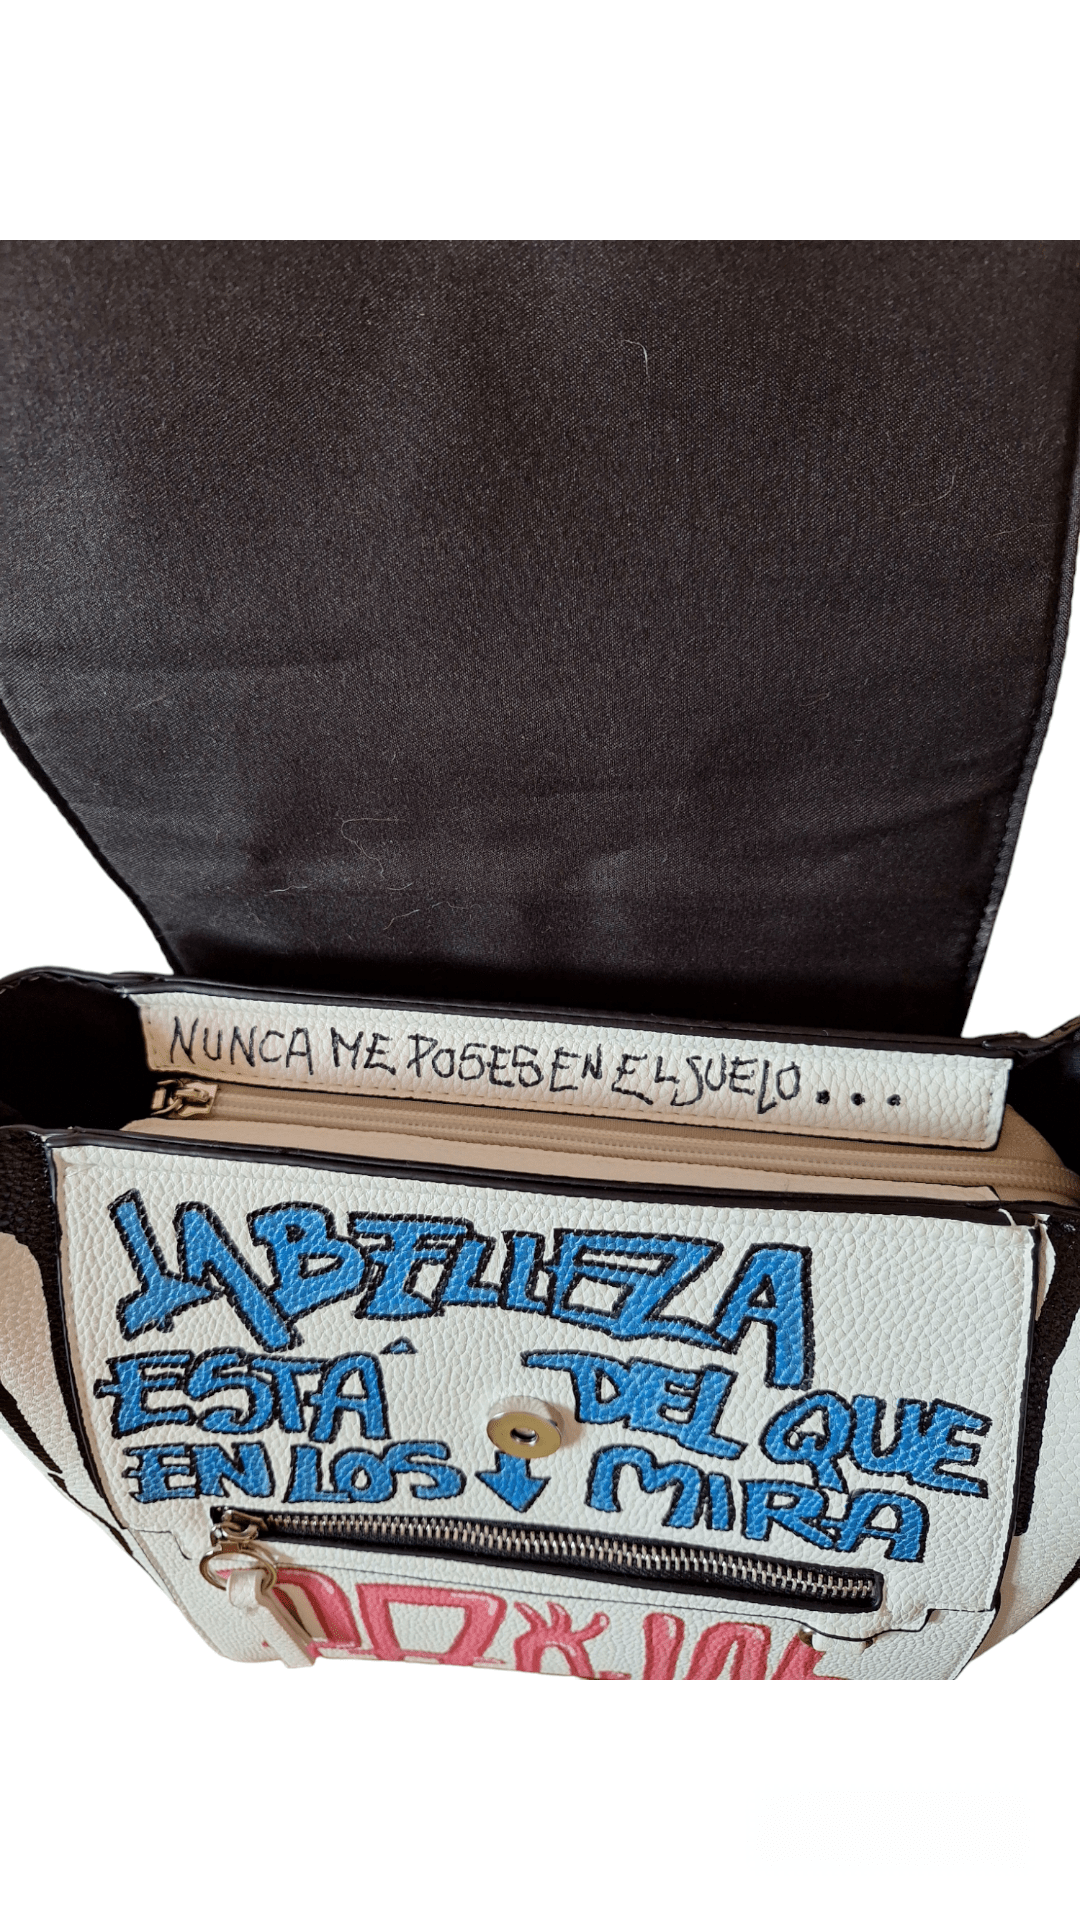 NUNCA ME POSES EN EL SUELO...
LA BELLEZA
ESTÁ DEL QUE
EN LOS MIRA